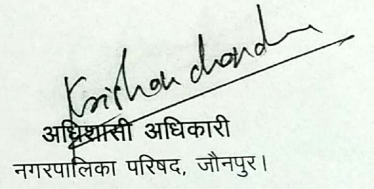 Krishan chandra
अधिशासी अधिकारी
नगरपालिका परिषद, जौनपुर।